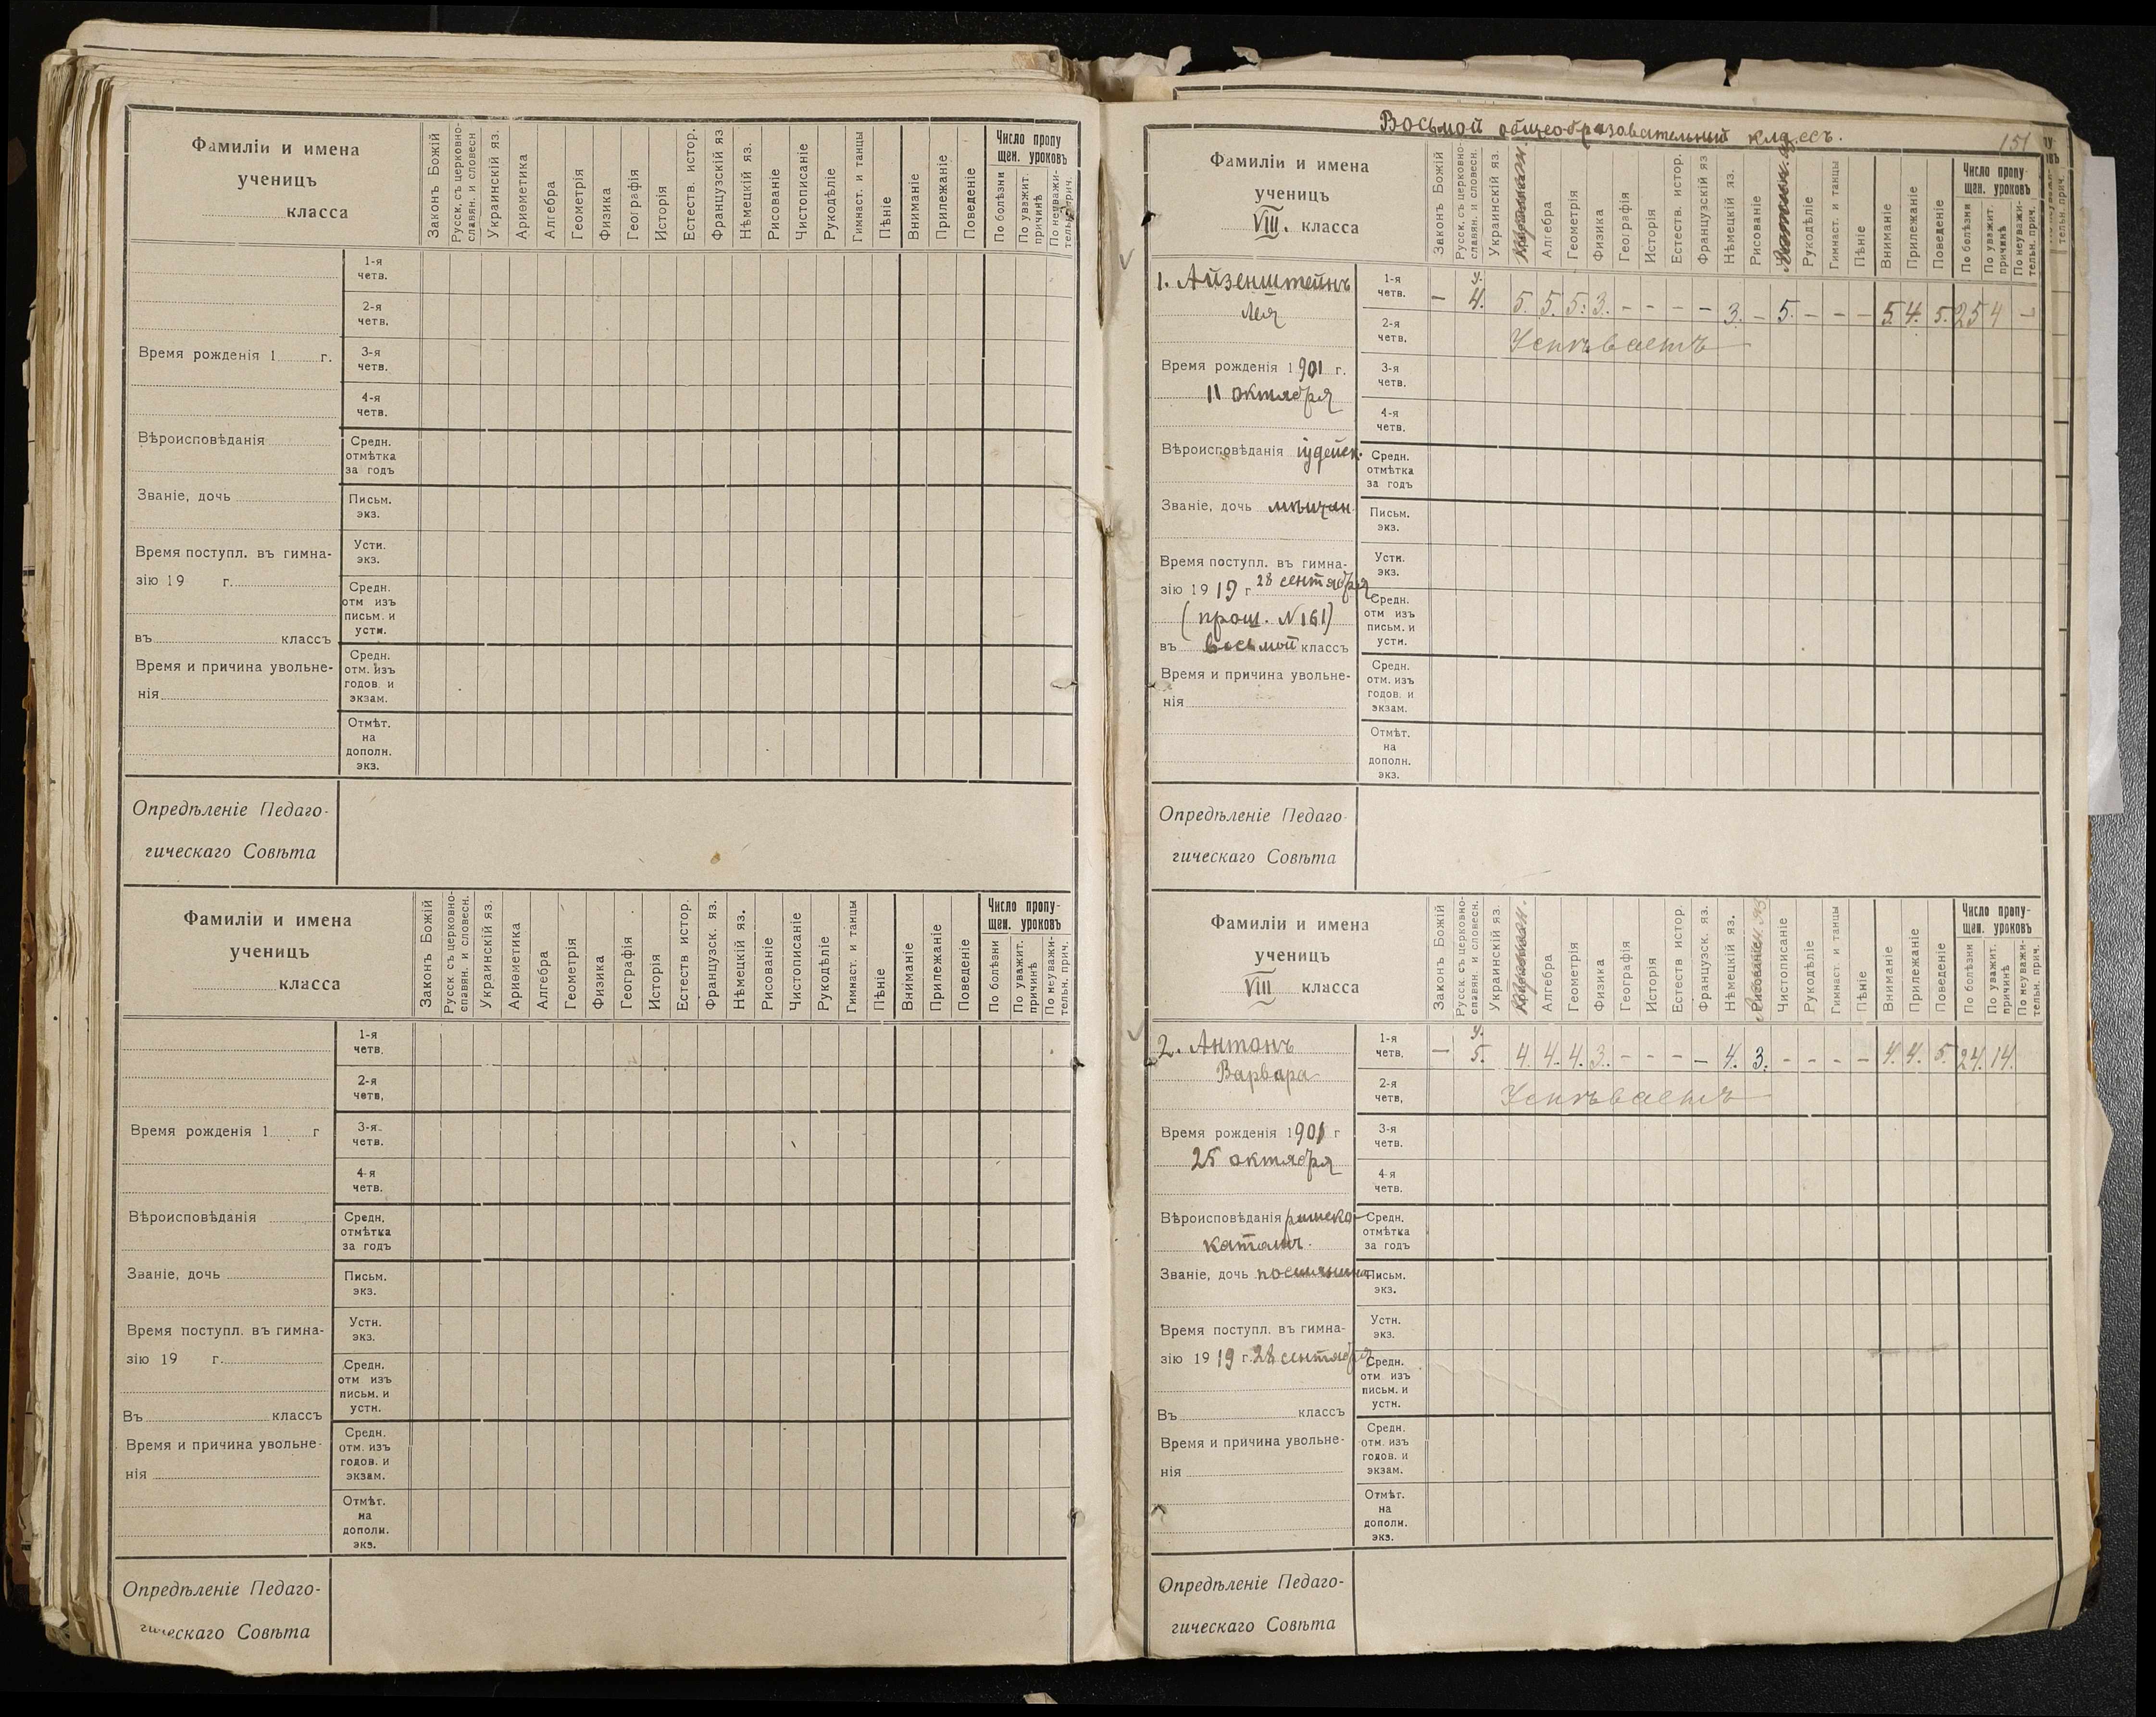 Фамиліи и имена
ученицъ
класса
Законъ Божій
Русск. съ церковно-
славян. и словесн
Украинскій яз.
Ариѳметика
Алгебра
Геометрія
Физика
Географія
Исторія
Естеств. истор.
Французскій яз
Нѣмецкій яз.
Рисованіе
Чистописаніе
Рукодѣліе
Гимнаст. и танцы
Пѣніе
Вниманіе
Прилежаніе
Поведеніе
Число пропу
щен. уроковъ
По болѣзни
По уважит.
причинѣ
По неуважи-
тельн. прич.
1-я
четв.
2-я
четв.
Время рожденія 1 г.
3-я
четв.
4-я
четв.
Вѣроисповѣданія
Средн.
отмѣтка
за годъ
Званіе, дочь
Письм.
экз.
Время поступл. въ гимна-
зію 19 г.
Устн.
экз.
Средн.
отм изъ
письм. и
устн.
въ классъ
Время и причина увольне-
нія
Средн.
отм. изъ
годов. и
экзам.
Отмѣт.
на
дополн.
экз.
Опредѣленіе Педаго-
гическаго Совѣта
Фамиліи и имена
ученицъ
класса
Законъ Божій
Русск. съ церковно-
славян. и словесн.
Украинскій яз.
Ариѳметика
Алгебра
Геометрія
Физика
Географія
Исторія
Естеств истор.
Французск. яз.
Нѣмецкій яз.
Рисованіе
Чистописаніе
Рукодѣліе
Гимнаст. и танцы
Пѣніе
Вниманіе
Прилежаніе
Поведеніе
Число пропу-
щен. уроковъ
По болѣзни
По уважит.
причинѣ
По неуважи-
тельн. прич.
1-я
четв.
2-я
четв,
Время рожденія 1 г
3-я
четв.
4-я
четв.
Вѣроисповѣданія
Средн,
отмѣтка
за годъ
Званіе, дочь
Письм.
экз.
Время поступл. въ гимна-
зію 19 г.
Устн.
экз.
Средн.
отм изъ
письм. и
устн.
Въ классъ
Время и причина увольне-
нія
Средн.
отм. изъ
годов. и
экзам.
Отмѣт.
на
дополн.
экз.
Опредѣленіе Педаго-
гическаго Совѣта
Восьмой общеобразовательный классъ.
151
Фамиліи и имена
ученицъ
VIII. класса
Законъ Божій
Русск. съ церковно-
славян. и словесн.
Украинскій яз.
Алгебра
Геометрія
Физика
Географія
Исторія
Естеств. истор.
Французскій яз
Нѣмецкій яз.
Рисованіе
Рукодѣліе
Гимнаст. и танцы
Пѣніе
Вниманіе
Прилежаніе
Поведеніе
Число пропу-
щен. уроковъ
По болѣзни
По уважит.
причинѣ
По неуважи-
тельн. прич.
1. Айзенштейнъ
Лея
1-я
четв.
– 4. 5. 5. 5. 3. – – – – 3. – 5. – – – 5. 4. 5. 25 4 –
2-я
четв.
Успѣваетъ
Время рожденія 1901 г.
11 октября
3-я
четв.
4-я
четв.
Вѣроисповѣданія іудейск.
Средн.
отмѣтка
за годъ
Званіе, дочь мѣщан.
Письм.
экз.
Время поступл. въ гимна-
зію 1919 г. 28 сентября
(прош. N 161)
Устн.
экз.
Средн.
отм изъ
письм. и
устн.
въ восьмой классъ
Время и причина увольне-
нія
Средн.
отм. изъ
годов. и
экзам.
Отмѣт.
на
дополн.
экз.
Опредѣленіе Педаго
гическаго Совѣта
Фамиліи и имена
ученицъ
VIII класса
Законъ Божій
Русск. съ церковно-
славян. и словесн.
Украинскій яз.
Алгебра
Геометрія
Физика
Географія
Исторія
Естеств истор.
Французск. яз.
Нѣмецкій яз.
Рисованіе
Чистописаніе
Рукодѣліе
Гимнаст. и танцы
Пѣніе
Вниманіе
Прилежаніе
Поведеніе
Число пропу-
щен. уроковъ
По болѣзни
По уважит.
причинѣ
По неуважи-
тельн. прич.
2. Антонъ
Варвара
1-я
четв.
– 5. 4. 4. 4. 3. – – – – 4. 3. – – – – 4. 4. 5. 24. 14.
2-я
четв,
Успѣваетъ
Время рожденія 1901 г
25 октября
3-я
четв.
4-я
четв.
Вѣроисповѣданія римско-
католич.
Средн.
отмѣтка
за годъ
Званіе, дочь поселянина
Письм.
экз.
Время поступл. въ гимна-
зію 1919 г. 28 сентября
Устн.
экз.
Средн.
отм изъ
письм. и
устн.
Въ классъ
Время и причина увольне-
нія
Средн.
отм. изъ
годов. и
экзам.
Отмѣт.
на
дополн.
экз.
Опредѣленіе Педаго-
гическаго Совѣта